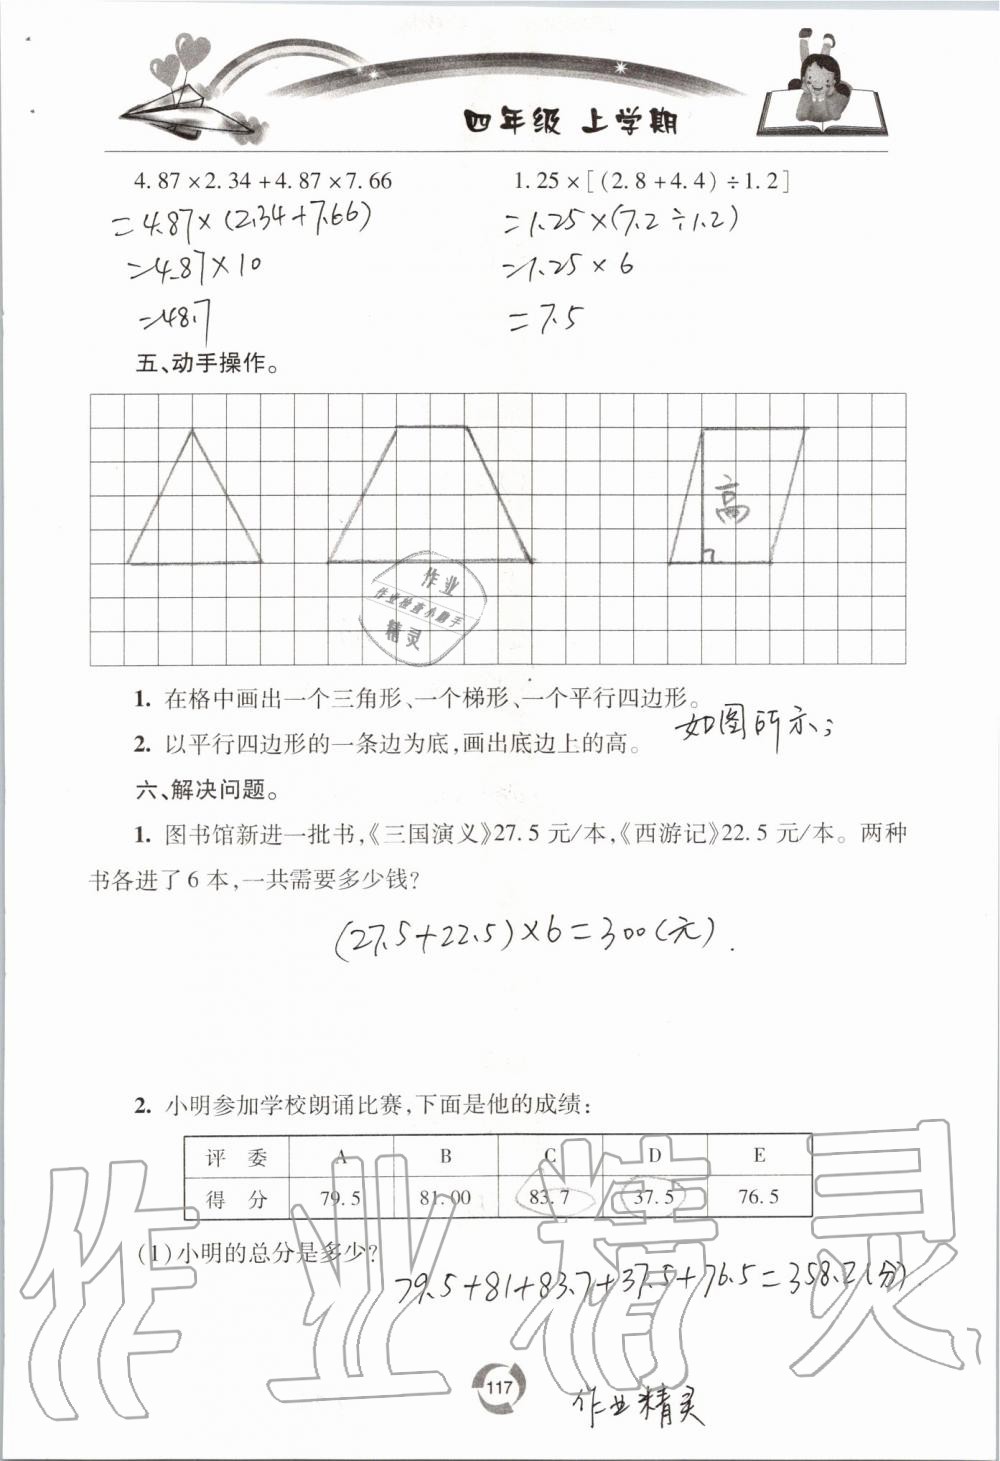 四年级 上学期
4.87×2.34+4.87×7.66 1.25×[(2.8+4.4)÷1.2]
=4.87×(2.34+7.66) =1.25×(7.2÷1.2)
=4.87×10 =1.25×6
=48.7 =7.5
五、动手操作。
高
作业
作业检查小助手
精灵
1. 在格中画出一个三角形、一个梯形、一个平行四边形。
如图所示;
2. 以平行四边形的一条边为底,画出底边上的高。
六、解决问题。
1. 图书馆新进一批书,《三国演义》27.5 元/本,《西游记》22.5 元/本。两种
书各进了6本,一共需要多少钱?
(27.5+22.5)×6=300(元).
2. 小明参加学校朗诵比赛,下面是他的成绩:
评 委 A B C D E
得 分 79.5 81.00 83.7 37.5 76.5
(1)小明的总分是多少?
79.5+81+83.7+37.5+76.5=358.2(分)
117
作业精灵
作业精灵